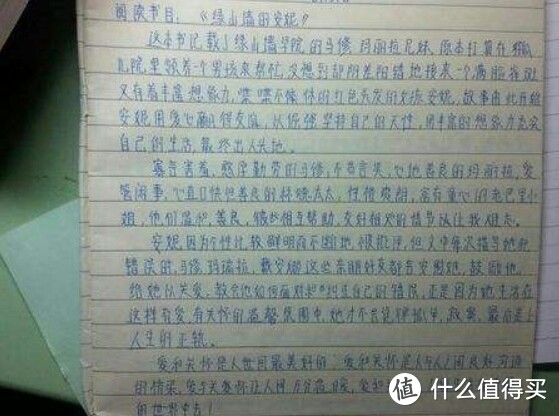 阅读书目:《绿山墙的安妮》
这本书记载了绿山墙学院的马修、玛丽拉兄妹,原本打算在孤
儿院里领养个男孩来帮忙,没想到却阴差阳错地接来一个满脸雀斑
又有着丰富想象力,喋喋不休的红色头发的女孩安妮,故事由此开始
安妮用爱心赢得友谊,以倔强坚持自己的天性,用丰富的想象力充实
自己的生活,最终出人头地。
寡言害羞,憨厚勤劳的马修,不苟言笑,心地善良的玛丽拉,爱
管闲事,心直口快但善良的林德太太,性格爽朗,富有童心的老巴里小
姐,他们温和善良,彼此相互帮助,友好相处的情节从让我难忘。
安妮因为个性比较鲜明而不断地 批评,但文中每次描写她犯
错误时,马修,玛瑞拉,戴安娜这些亲朋好友都会安慰她,鼓励他,
给她以关爱,教会他如何面对和纠正自己的错误,正是因为她生活在
这样有爱,有关怀的温馨氛围中,她才不会觉得孤单,寂寞,最后走上
人生的正轨。
爱和关怀是人世间最美好的,爱和关怀是人与人之间良好沟通
的结果,爱与关怀让人间 ,爱和
的世界中去!
值 什么值得买